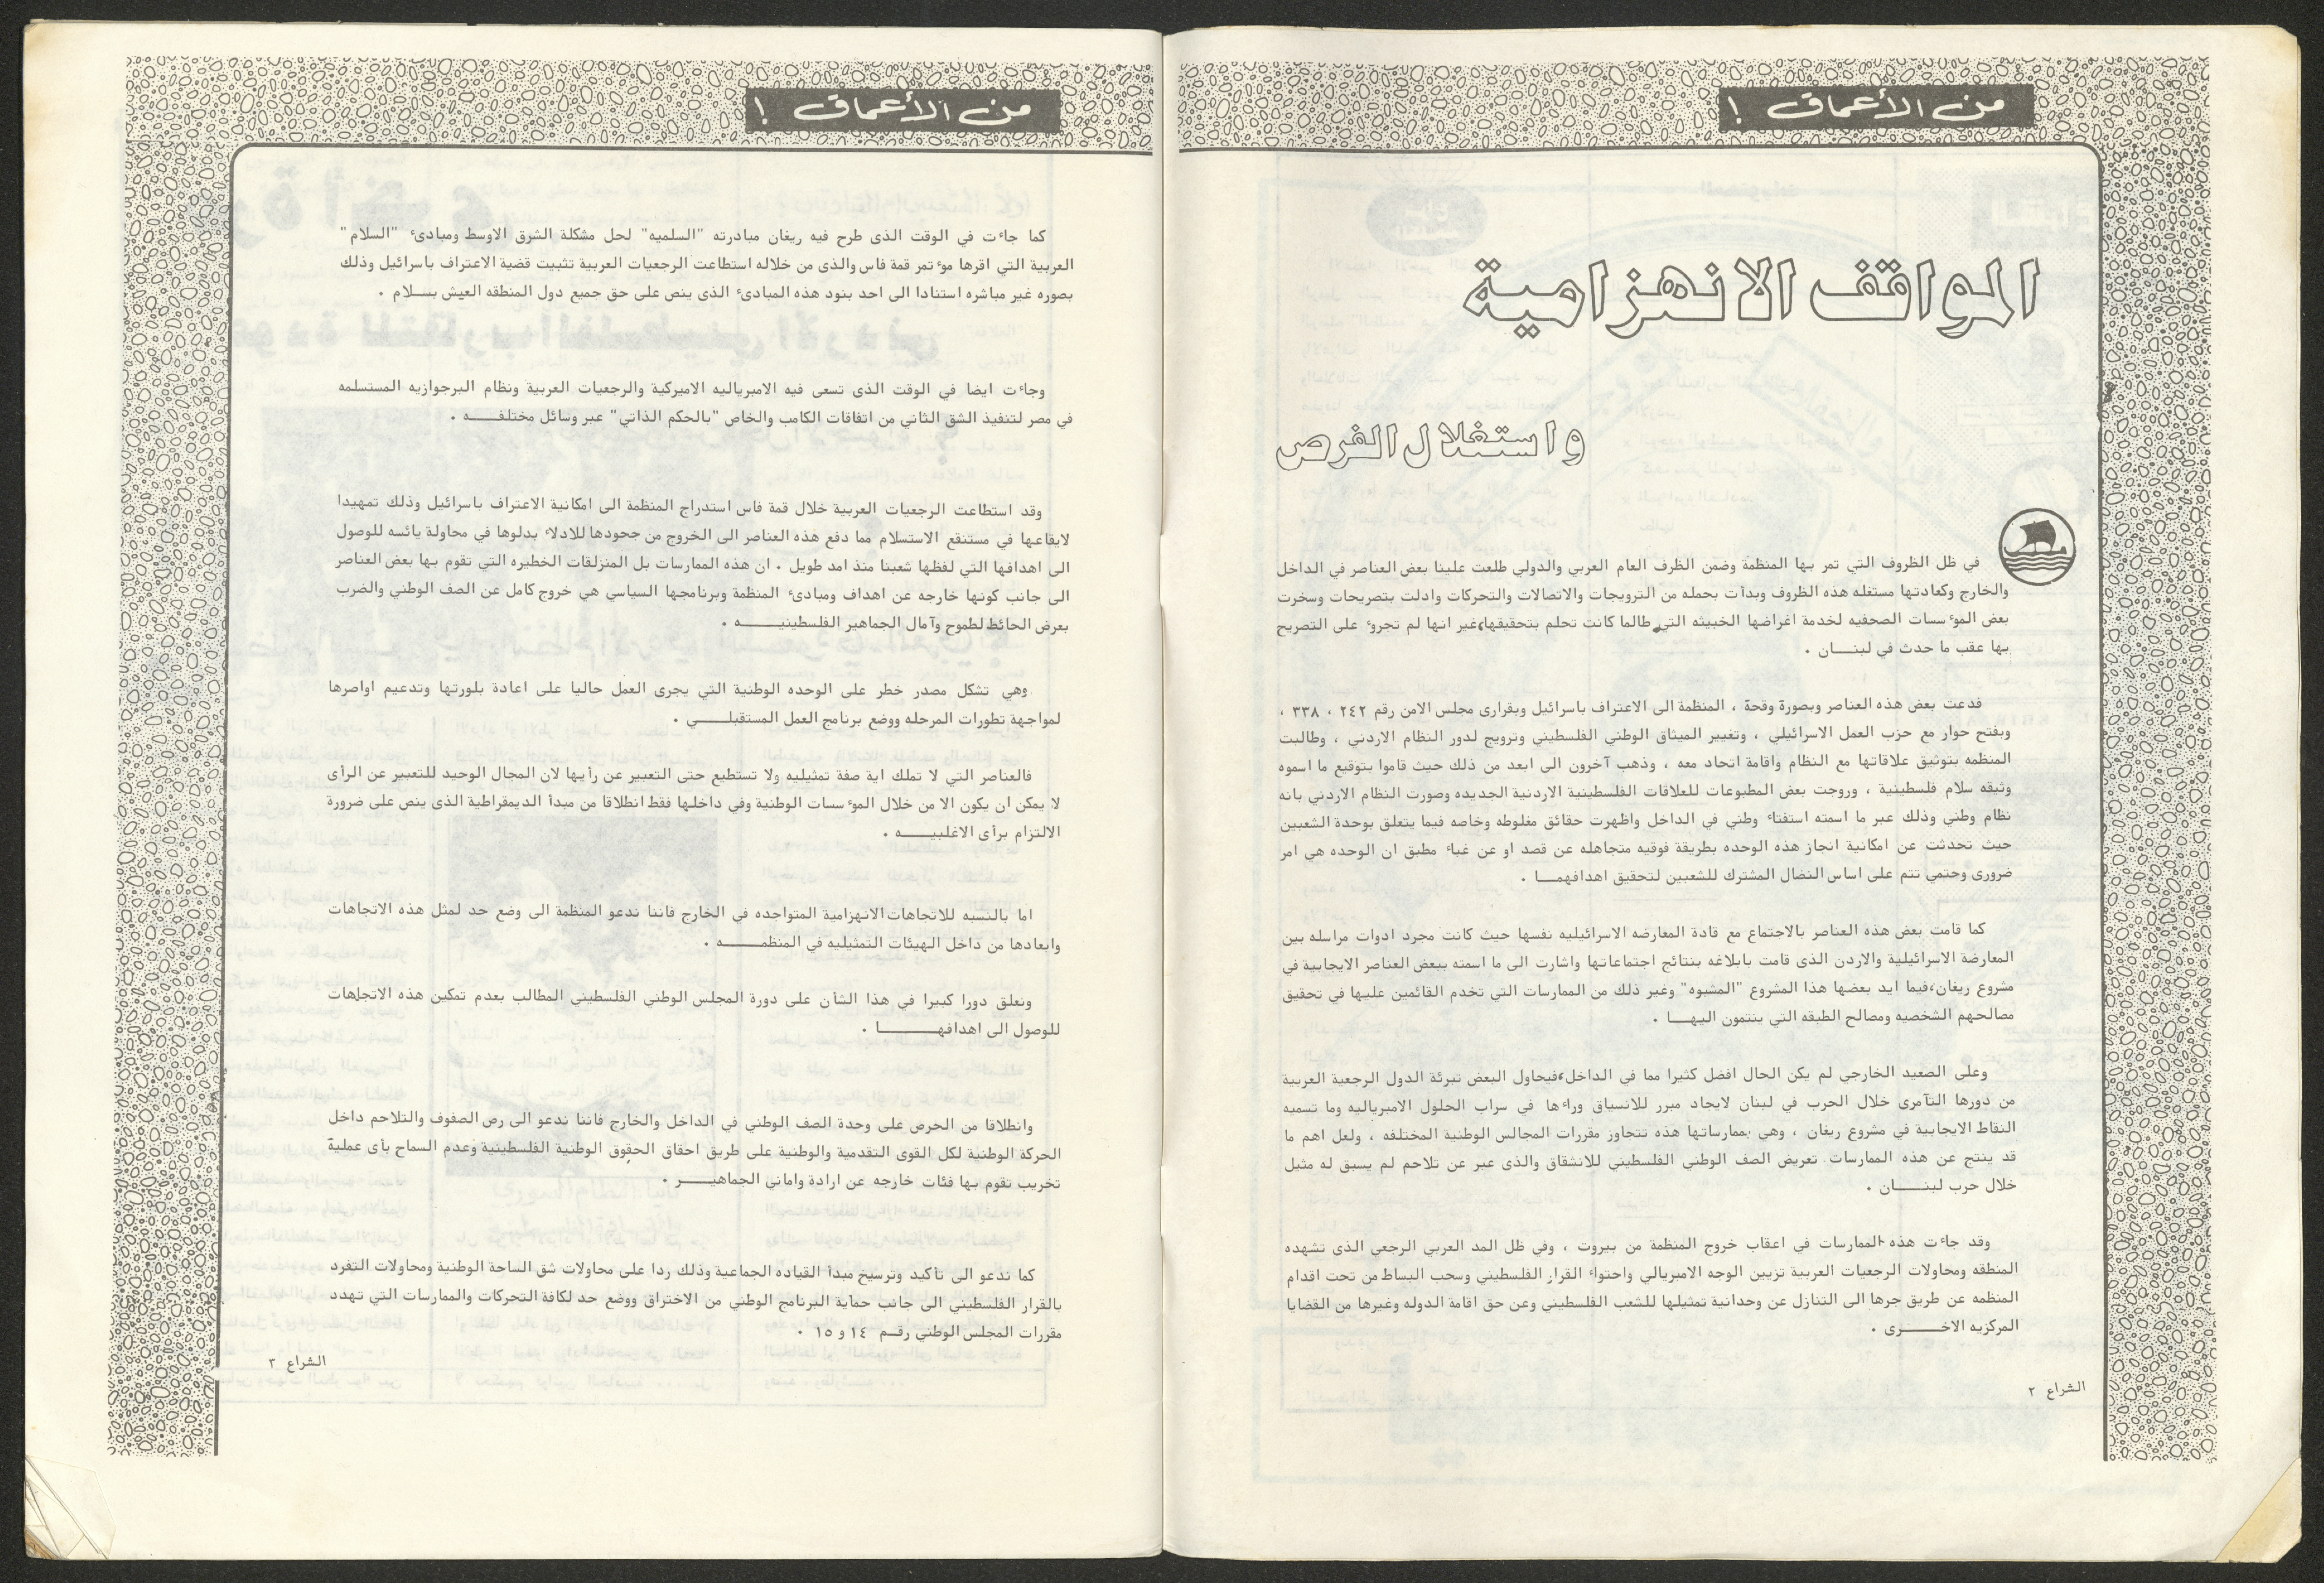 من الأعماق !
المواقف الانهزامية
واستغلال الفرص
في ظل الظروف التي تمر بها المنظمة وضمن الظرف العام العربي والدولي طلعت علينا بعض العناصر في الداخل
والخارج وكعادتها مستغله هذه الظروف وبدأت بحمله من الترويجات والاتصالات والتحركات وادلت بتصريحات وسخرت
بعض الموءسسات الصحفيه لخدمة اغراضها الخبيثه التي طالما كانت تحلم بتحقيقها،غير انها لم تجروء على التصريح
بها عقب ما حدث في لبنــــان .
فدعت بعض هذه العناصر وبصورة وقحة ، المنظمة الى الاعتراف باسرائيل وبقرارى مجلس الامن رقم ٢٤٢ ، ٣٣٨ ،
وبفتح حوار مع حزب العمل الاسرائيلي ، وتغيير الميثاق الوطني الفلسطيني وترويج لدور النظام الاردني ، وطالبت
المنظمه بتوثيق علاقاتها مع النظام واقامة اتحاد معه ، وذهب آخرون الى ابعد من ذلك حيث قاموا بتوقيع ما اسموه
وثيقه سلام فلسطينية ، وروجت بعض المطبوعات للعلاقات الفلسطينية الاردنية الجديده وصورت النظام الاردني بانه
نظام وطني وذلك عبر ما اسمته استفتاء وطني في الداخل واظهرت حقائق مغلوطه وخاصه فيما يتعلق بوحدة الشعبين
حيث تحدثت عن امكانية انجاز هذه الوحده بطريقة فوقيه متجاهله عن قصد او عن غباء مطبق ان الوحده هي امر
ضرورى وحتمي تتم على اساس النضال المشترك للشعبين لتحقيق اهدافهمــــا .
كما قامت بعض هذه العناصر بالاجتماع مع قادة المعارضه الاسرائيليه نفسها حيث كانت مجرد ادوات مراسله بين
المعارضة الاسرائيلية والاردن الذى قامت بابلاغه بنتائج اجتماعاتها واشارت الى ما اسمته ببعض العناصر الايجابية في
مشروع ريغان،فيما ايد بعضها هذا المشروع "المشبوه" وغير ذلك من الممارسات التي تخدم القائمين عليها في تحقيق
مصالحهم الشخصيه ومصالح الطبقه التي ينتمون اليهــــا .
وعلى الصعيد الخارجي لم يكن الحال افضل كثيرا مما في الداخل،فيحاول البعض تبرئة الدول الرجعية العربية
من دورها التآمرى خلال الحرب في لبنان لايجاد مبرر للانسياق وراءها في سراب الحلول الامبرياليه وما تسميه
النقاط الايجابية في مشروع ريغان ، وهي بممارساتها هذه تتجاوز مقررات المجالس الوطنية المختلفه ، ولعل اهم ما
قد ينتج عن هذه الممارسات تعريض الصف الوطني الفلسطيني للانشقاق والذى عبر عن تلاحم لم يسبق له مثيل
خلال حرب لبنــــان .
وقد جاءت هذه الممارسات في اعقاب خروج المنظمة من بيروت ، وفي ظل المد العربي الرجعي الذى تشهده
المنطقه ومحاولات الرجعيات العربية تزيين الوجه الامبريالي واحتواء القرار الفلسطيني وسحب البساط من تحت اقدام
المنظمه عن طريق جرها الى التنازل عن وحدانية تمثيلها للشعب الفلسطيني وعن حق اقامة الدوله وغيرها من القضايا
المركزيه الاخــــرى .
الشراع ٢
من الأعماق !
كما جاءت في الوقت الذى طرح فيه ريغان مبادرته "السلميه" لحل مشكلة الشرق الاوسط ومبادىء "السلام"
العربية التي اقرها موءتمر قمة فاس والذى من خلاله استطاعت الرجعيات العربية تثبيت قضية الاعتراف باسرائيل وذلك
بصوره غير مباشره استنادا الى احد بنود هذه المبادىء الذى ينص على حق جميع دول المنطقه العيش بســلام .
وجاءت ايضا في الوقت الذى تسعى فيه الامبرياليه الاميركية والرجعيات العربية ونظام البرجوازيه المستسلمه
في مصر لتنفيذ الشق الثاني من اتفاقات الكامب والخاص "بالحكم الذاتي" عبر وسائل مختلفــــه .
وقد استطاعت الرجعيات العربية خلال قمة فاس استدراج المنظمة الى امكانية الاعتراف باسرائيل وذلك تمهيدا
لايقاعها في مستنقع الاستسلام مما دفع هذه العناصر الى الخروج من جحودها للادلاء بدلوها في محاولة يائسه للوصول
الى اهدافها التي لفظها شعبنا منذ امد طويل . ان هذه الممارسات بل المنزلقات الخطيره التي تقوم بها بعض العناصر
الى جانب كونها خارجه عن اهداف ومبادىء المنظمة وبرنامجها السياسي هي خروج كامل عن الصف الوطني والضرب
بعرض الحائط لطموح وآمال الجماهير الفلسطينيــــه .
وهي تشكل مصدر خطر على الوحده الوطنية التي يجرى العمل حاليا على اعادة بلورتها وتدعيم اواصرها
لمواجهة تطورات المرحله ووضع برنامج العمل المستقبلــــي .
فالعناصر التي لا تملك اية صفة تمثيليه ولا تستطيع حتى التعبير عن رأيها لان المجال الوحيد للتعبير عن الرأى
لا يمكن ان يكون الا من خلال الموءسسات الوطنية وفي داخلها فقط انطلاقا من مبدأ الديمقراطية الذى ينص على ضرورة
الالتزام برأى الاغلبيــــه .
اما بالنسبه للاتجاهات الانهزامية المتواجده في الخارج فاننا ندعو المنظمة الى وضع حد لمثل هذه الاتجاهات
وابعادها من داخل الهيئات التمثيليه في المنظمــــه .
ونعلق دورا كبيرا في هذا الشأن على دورة المجلس الوطني الفلسطيني المطالب بعدم تمكين هذه الاتجاهات
للوصول الى اهدافهــــا .
وانطلاقا من الحرص على وحدة الصف الوطني في الداخل والخارج فاننا ندعو الى رص الصفوف والتلاحم داخل
الحركة الوطنية لكل القوى التقدمية والوطنية على طريق احقاق الحقوق الوطنية الفلسطينية وعدم السماح بأى عملية
تخريب تقوم بها فئات خارجه عن ارادة واماني الجماهيــــر .
كما ندعو الى تأكيد وترسيخ مبدأ القياده الجماعية وذلك ردا على محاولات شق الساحة الوطنية ومحاولات التفرد
بالقرار الفلسطيني الى جانب حماية البرنامج الوطني من الاختراق ووضع حد لكافة التحركات والممارسات التي تهدد
مقررات المجلس الوطني رقــم ١٤ و ١٥ .
الشراع ٣